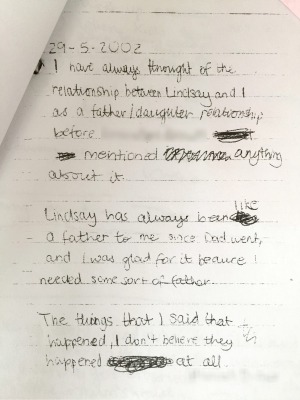 29-5-2002
I have always thought of the
relationship between Lindsay and I
as a father/daughter relationship
before
mentioned anything
about it.
Lindsay has always been like
a father to me since Dad went,
and I was glad for it because I
needed some sort of father.
The things that I said that
happened, I don't believe they
happened at all.